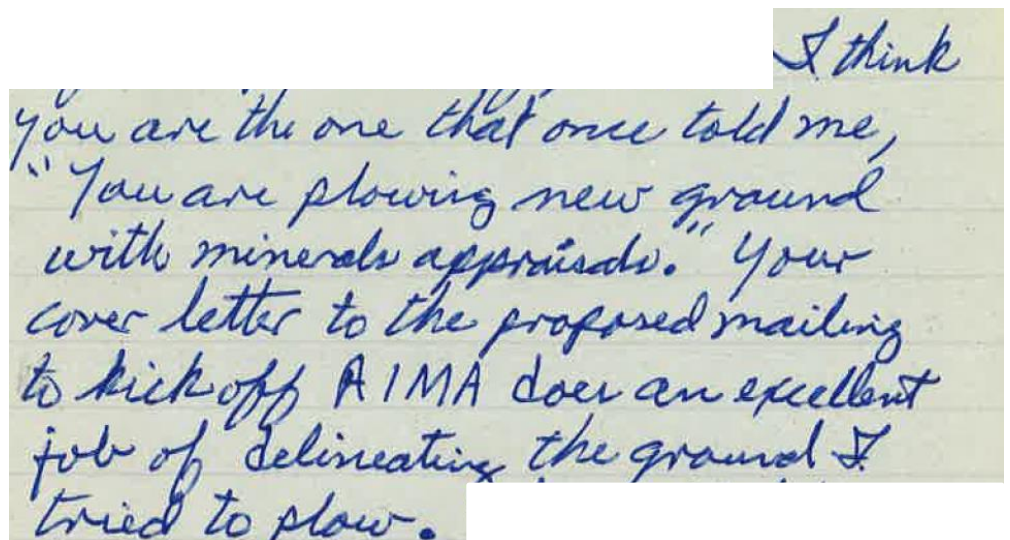 I think
you are the one that once told me,
"You are plowing new ground
with minerals appraisals." Your
cover letter to the proposed mailing
to kick off AIMA does an excellent
job of delineating the ground I
tried to plow.